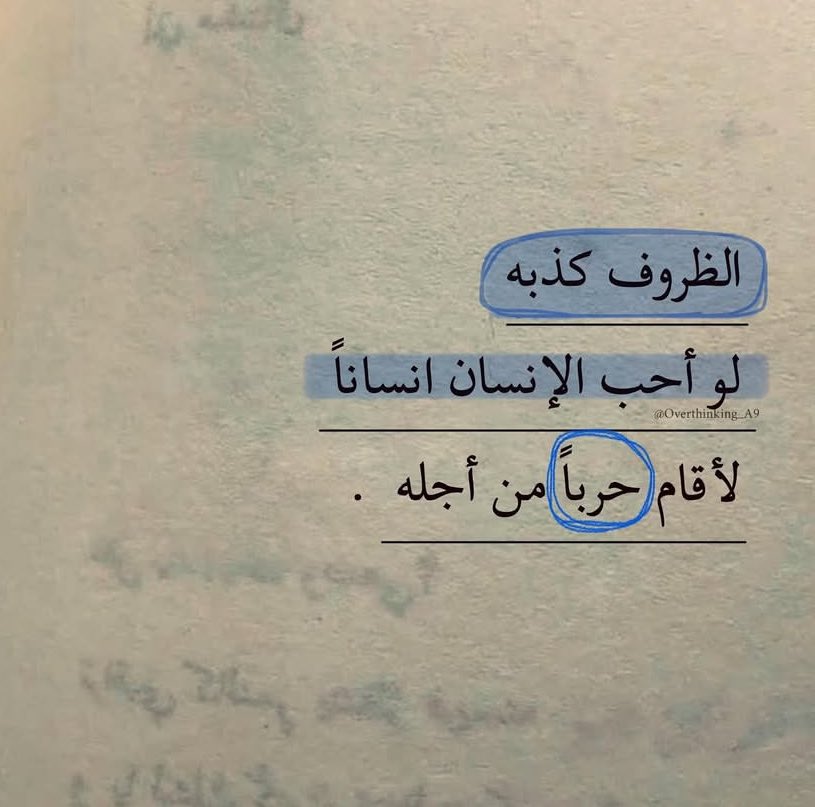 الظروف كذبه
لو أحب الإنسان انساناً
@Overthinking_A9
لأقام حرباً من أجله .